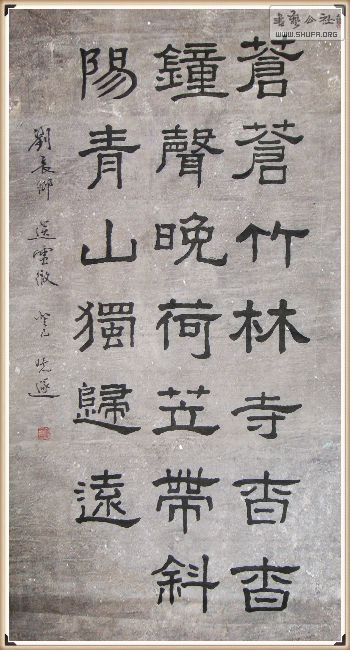 蒼蒼竹林寺杳杳
鐘聲晚荷苙帶斜
陽青山獨歸遠
劉長卿 送靈澈
書藝公社
WWW.SHUFA.ORG